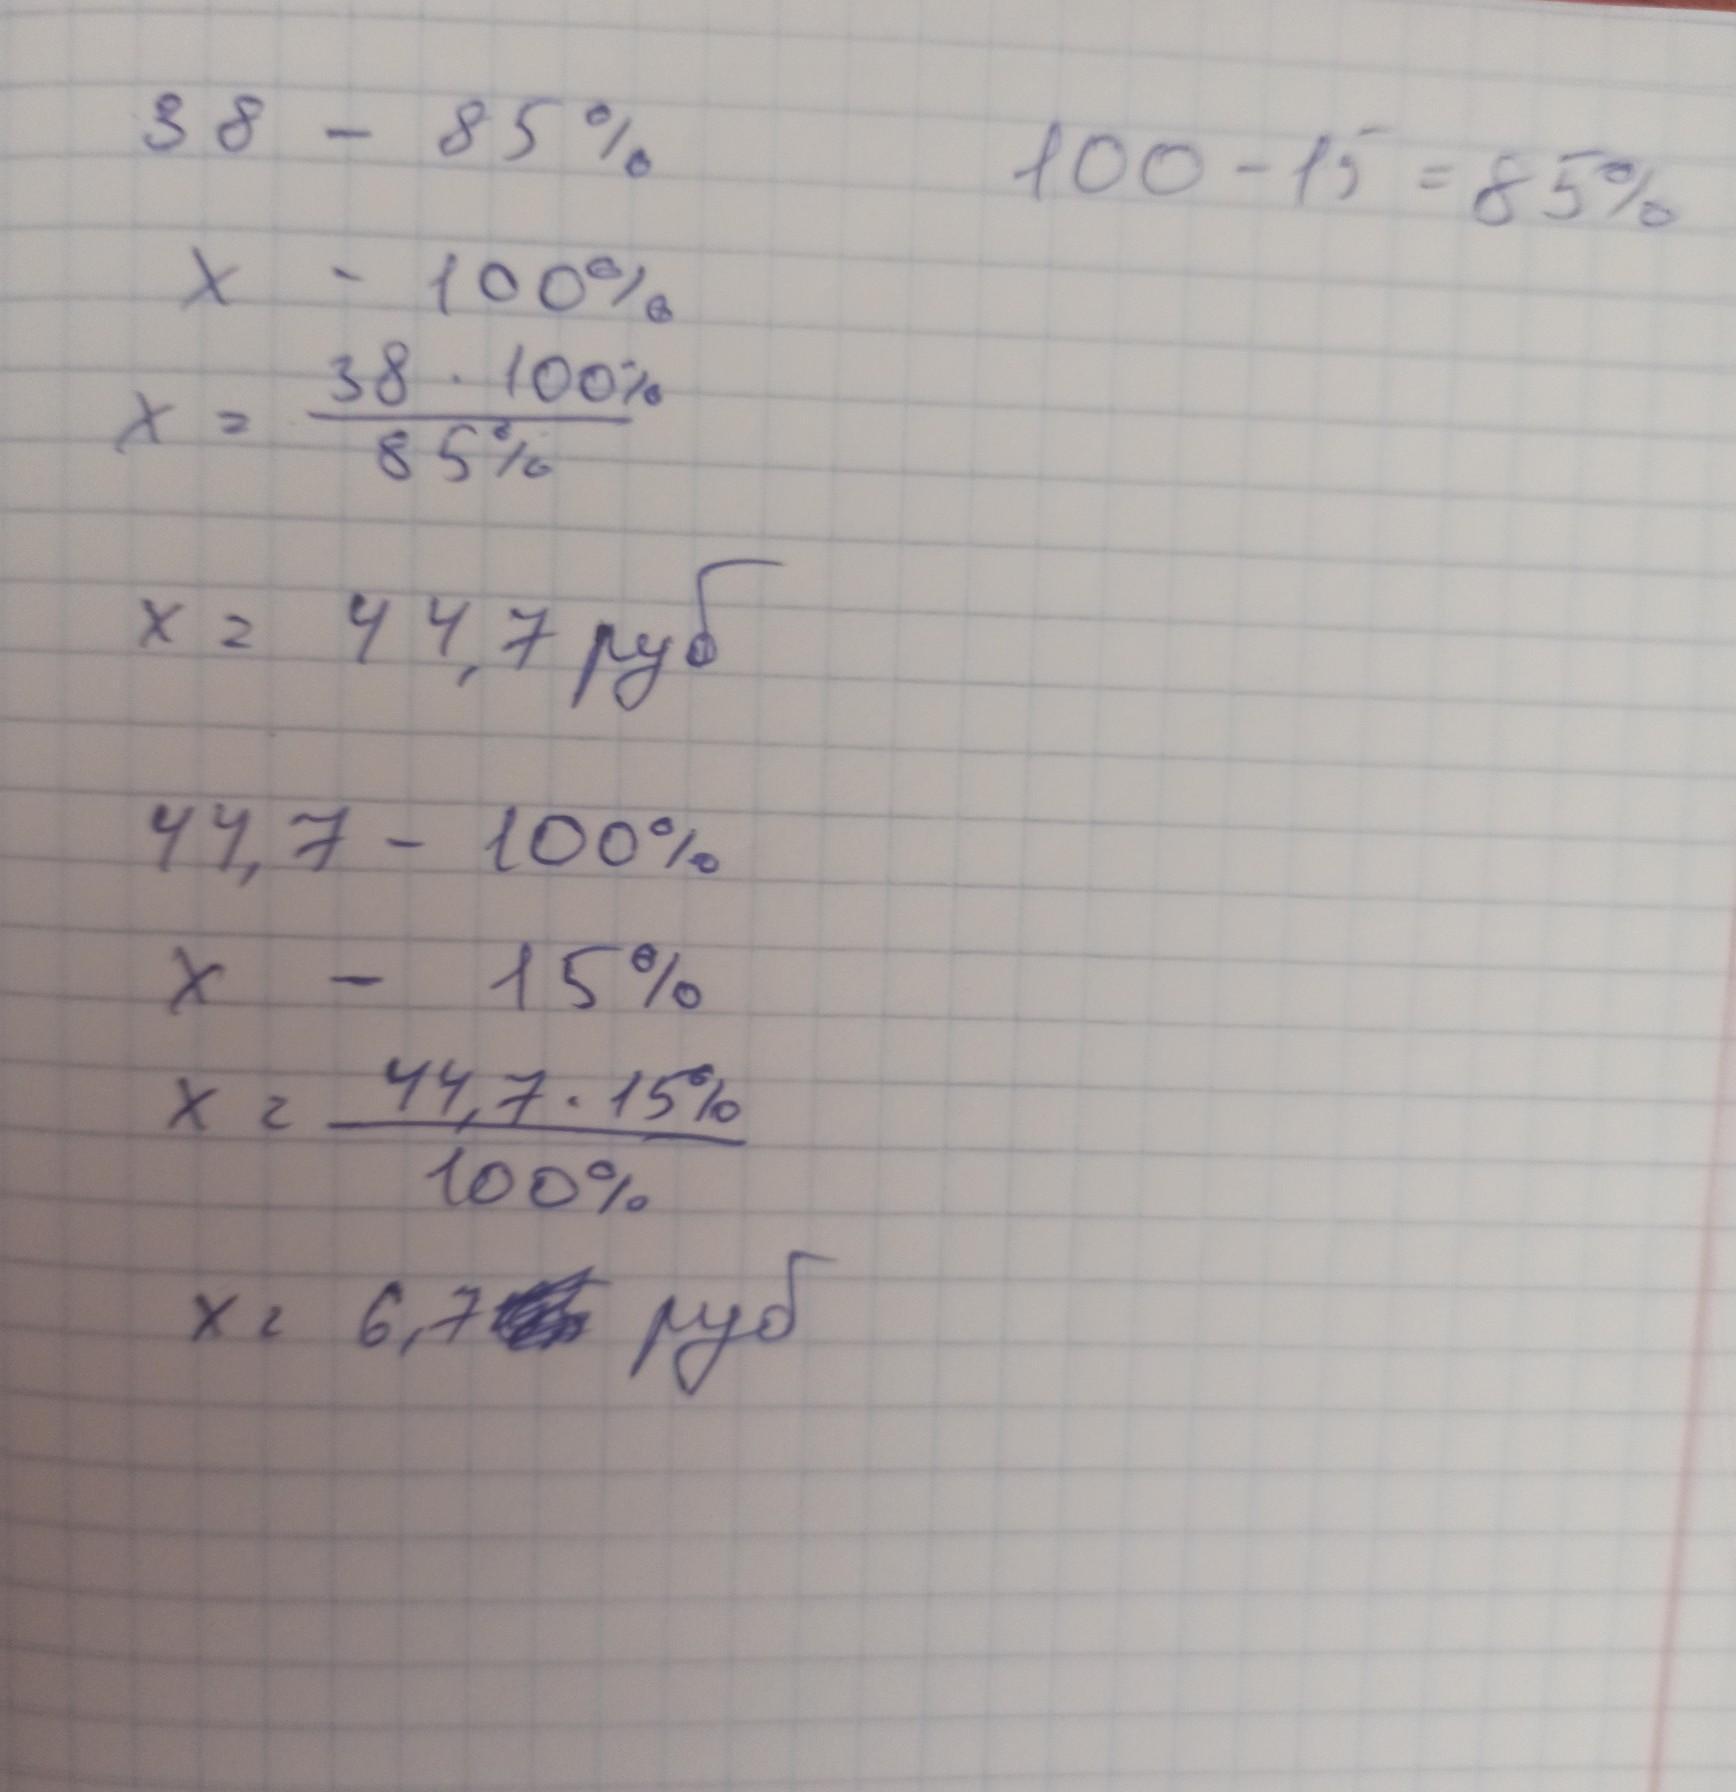 38 - 85%
100 - 15 = 85%
x - 100%
x = 38 · 100%
85%
x = 44,7 руб
44,7 - 100%
x - 15%
x = 44,7 · 15%
100%
x = 6,7 руб